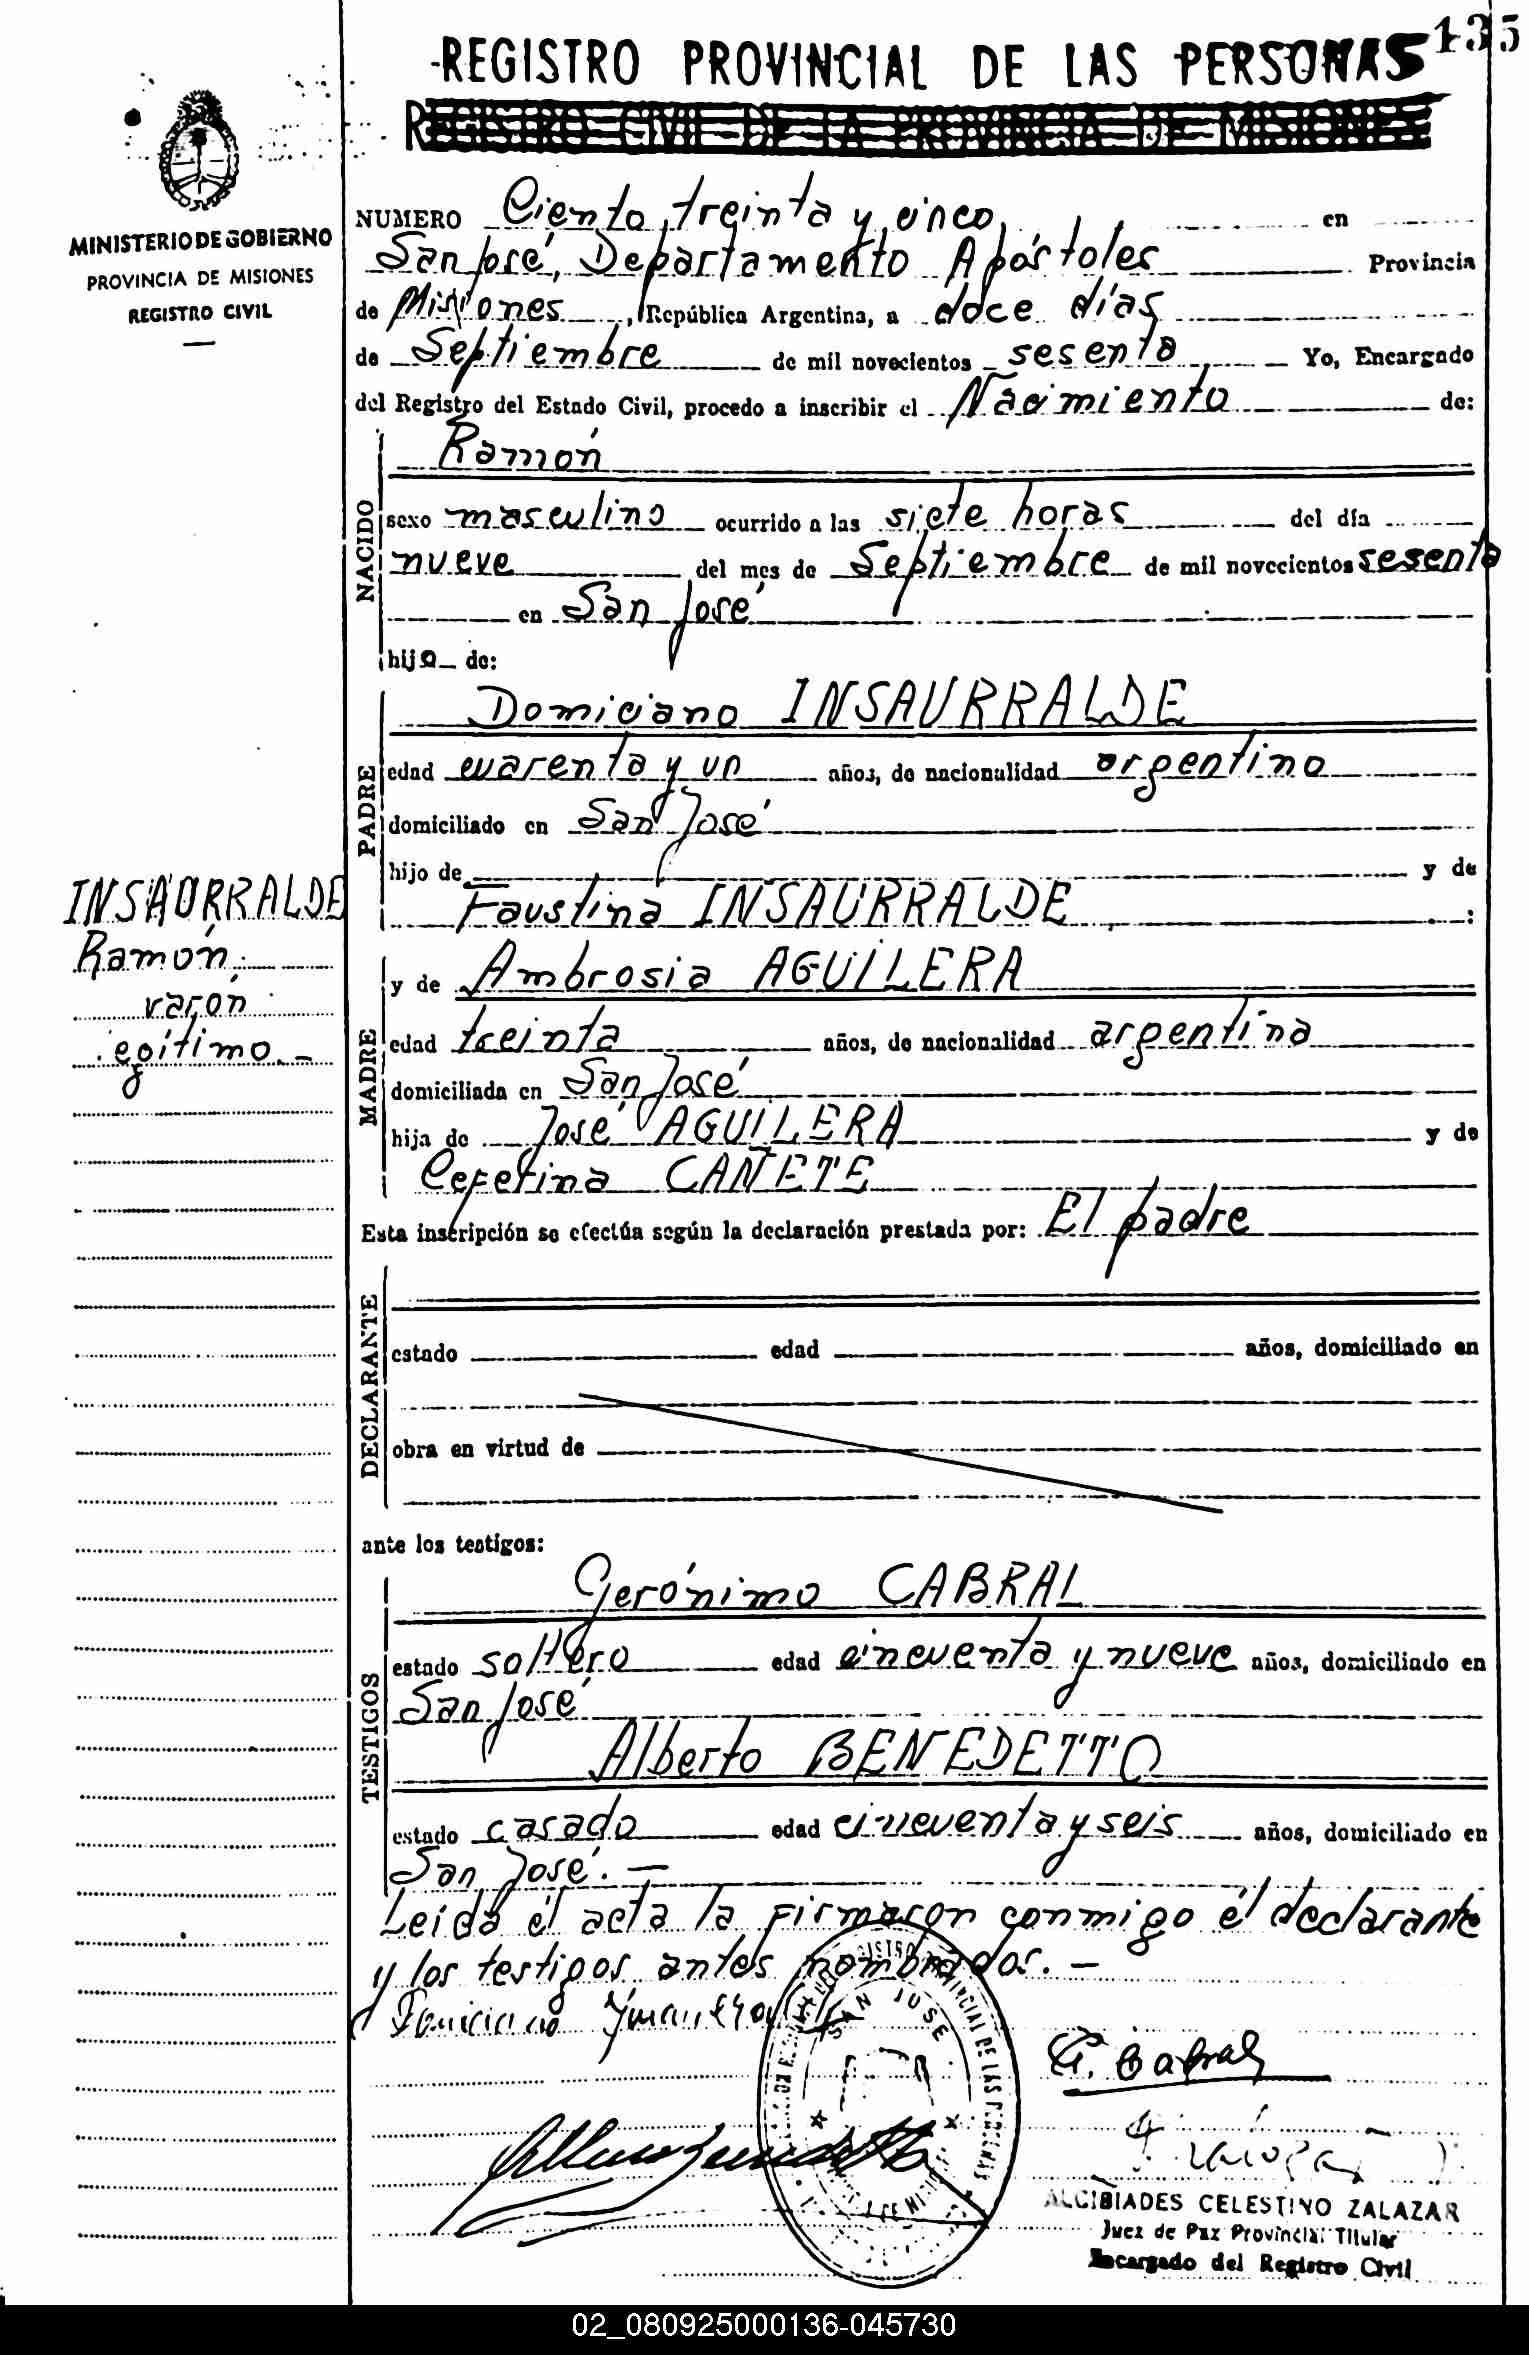 135
-REGISTRO PROVINCIAL DE LAS PERSONAS
REGISTRO CIVIL DE LA PROVINCIA DE MISIONES
MINISTERIO DE GOBIERNO
PROVINCIA DE MISIONES
REGISTRO CIVIL
NUMERO Ciento treinta y cinco en
San José, Departamento Apóstoles Provincia
de Misiones, República Argentina, a doce días
de Septiembre de mil novecientos sesenta Yo, Encargado
del Registro del Estado Civil, procedo a inscribir el Nacimiento de:
NACIDO
Ramón
sexo masculino ocurrido a las siete horas del día
nueve del mes de Septiembre de mil novecientos sesenta
en San José
hijo de:
PADRE
Domiciano INSAURRALDE
edad cuarenta y un años, de nacionalidad argentino
domiciliado en San José
hijo de y de
Faustina INSAURRALDE :
INSAURRALDE
Ramón.
varón
egítimo.-
MADRE
y de Ambrosia AGUILERA
edad treinta años, de nacionalidad argentina
domiciliada en San José
hija de José AGUILERA y de
Ceferina CAÑETE
Esta inscripción se efectúa según la declaración prestada por: El padre
DECLARANTE
estado edad años, domiciliado en
obra en virtud de
ante los testigos:
TESTIGOS
Gerónimo CABRAL
estado soltero edad cincuenta y nueve años, domiciliado en
San José
Alberto BENEDETTO
estado casado edad cincuenta y seis años, domiciliado en
San José.-
Leída él acta la firmaron conmigo él declarante
y los testigos antes nombrados.-
SAN JOSE
G. Cabral
ALCIBIADES CELESTINO ZALAZAR
Juez de Paz Provincial Titular
Encargado del Registro Civil
02_080925000136-045730